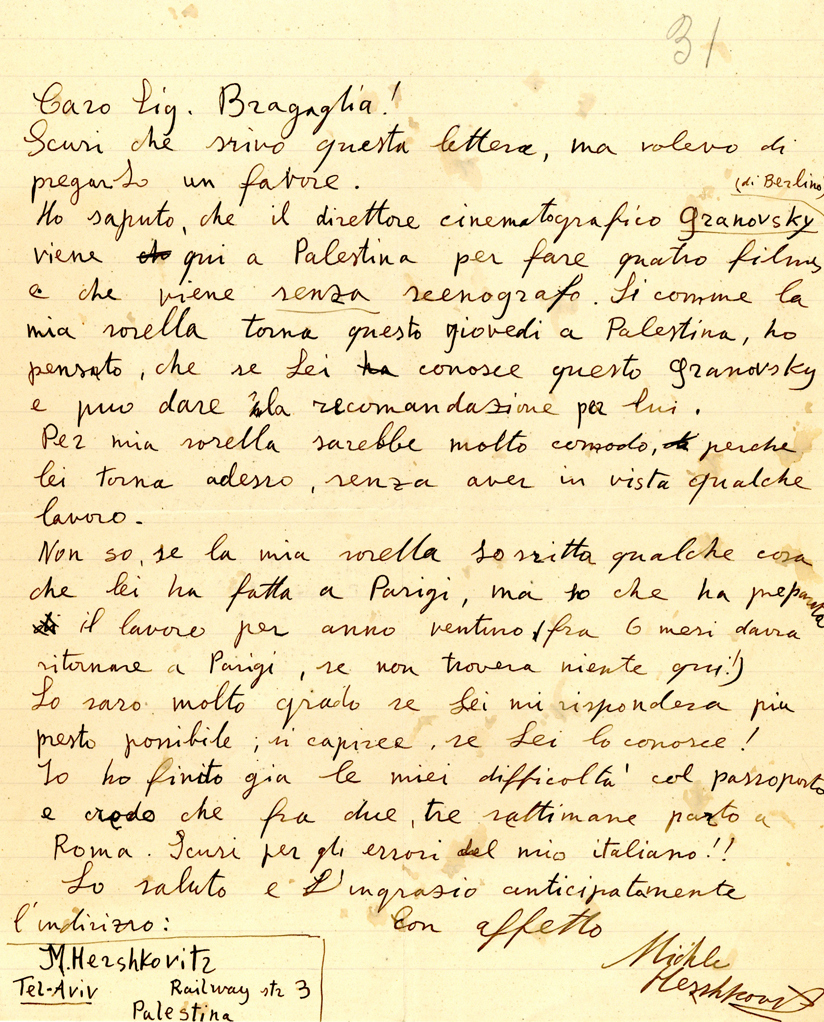 31
Caro Sig. Bragaglia!
Scusi che srivo questa lettera, ma volevo di
pregarLo un favore.
(di Berlino)
Ho saputo, che il direttore cinematografico Granovsky
viene qui a Palestina per fare quatro films
e che viene senza scenografo. Si comme la
mia sorella torna questo giovedi a Palestina, ho
pensato, che se Lei ha conosce questo Granovsky
e puo dare la recomandazione per lui.
Per mia sorella sarebbe molto comodo, perche
lei torna adesso, senza aver in vista qualche
lavoro.
Non so, se la mia sorella Lo sritta qualche cosa
che lei ha fatta a Parigi, ma so che ha preparata
il lavoro per anno venturo, (fra 6 mesi davra
ritornare a Parigi, se non trovera niente qui!)
Lo saro molto grado se Lei mi rispondera piu
presto possibile, si capisce, se Lei lo conosce!
Io ho finito gia le miei difficoltà col passoporto
e credo che fra due, tre sattimane parto a
Roma. Scusi per gli errori del mio italiano!!
Lo saluto e L'ingrasio anticipatamente
Con affetto
Michle
Hershkovitz
l'indirizzo:
M. Hershkovitz
Tel-Aviv Railway str 3
Palestina